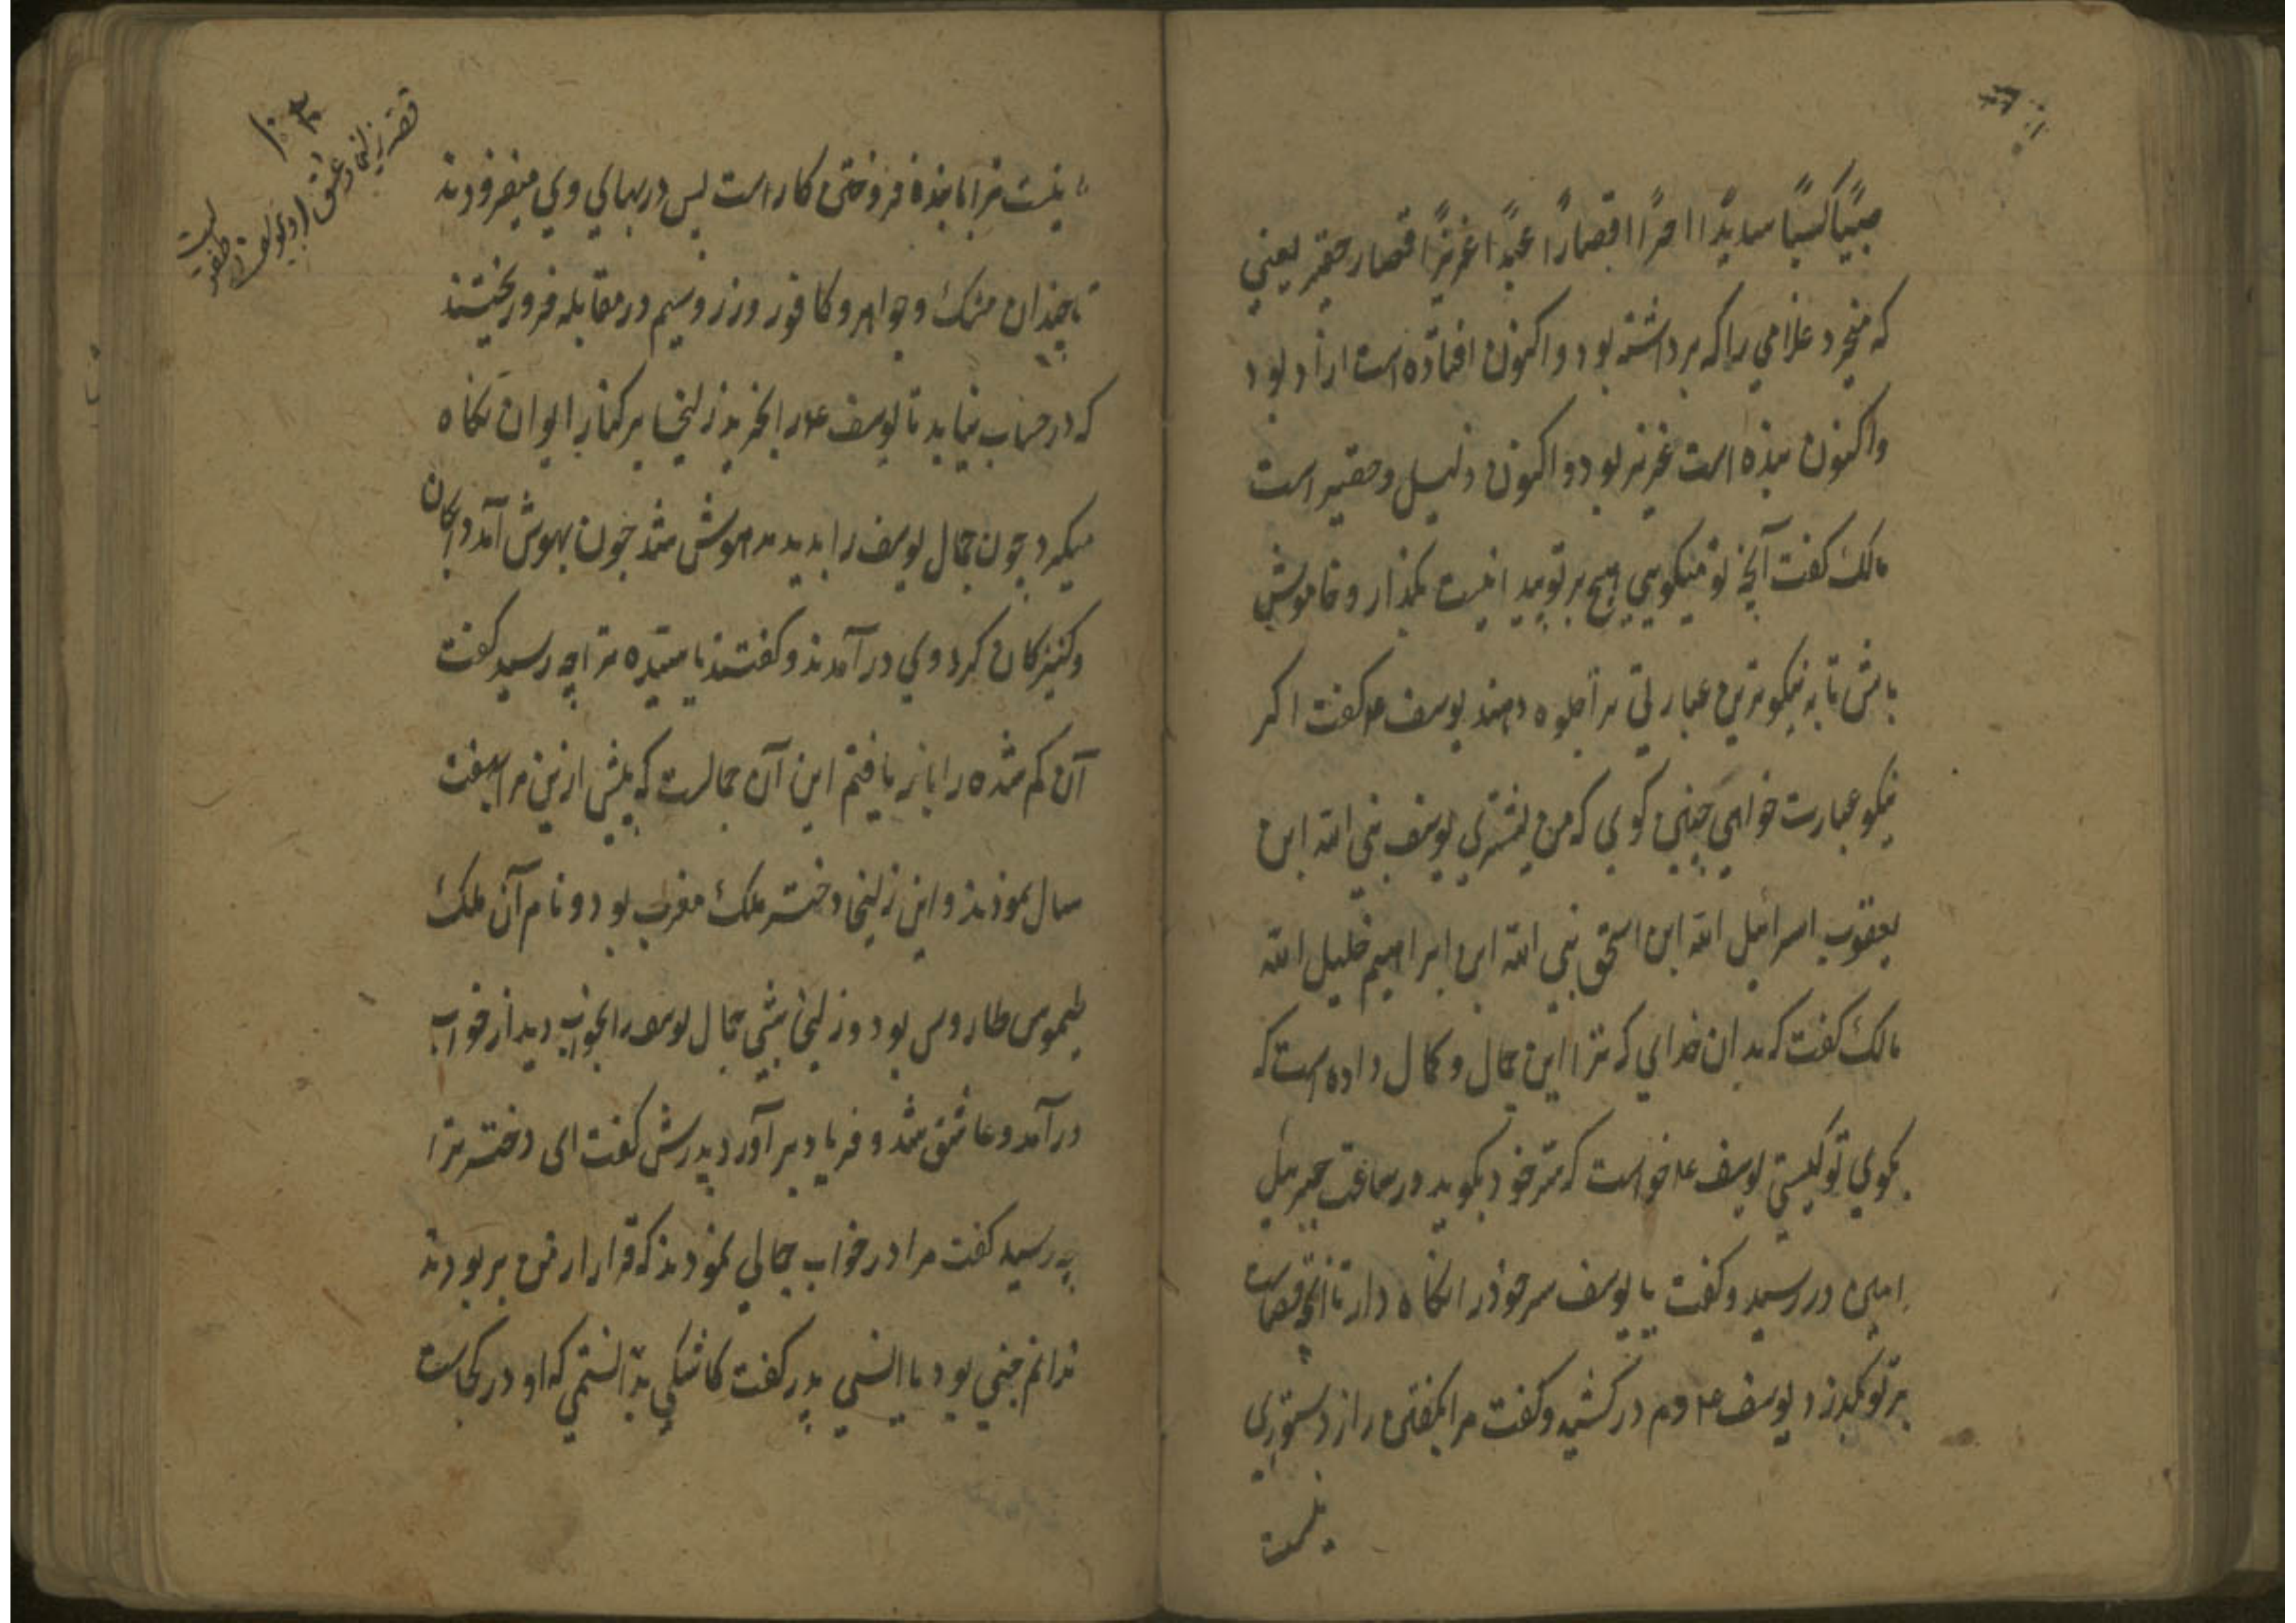 صبیًا کسیبًا سایدًا احرًا اقصارًا عبدًا عزیزًا اقصار حقیر یعنی
که میخرد غلامی را که برداشته بود و اکنون افتاده است ازاد بود
و اکنون بنده است عزیز بود و اکنون ذلیل و حقیر است
مالک کفت آنچه تو میکویی هیچ بر تو پیدا نیست بگذار و خاموش
باش تا به نیکوترین عبارتی ترا جلوه دهند یوسف ع کفت اکر
نیکو عبارت خواهی چنین کوی که من یشتری یوسف نبی الله ابن
یعقوب اسرائیل الله ابن اسحق نبی الله ابن ابراهیم خلیل الله
مالک کفت که بدان خدای که ترا این جمال و کمال داده است که
بکوی تو کیستی یوسف ع خواست که سر خود بکوید در ساعت جبرییل
امین در رسید و کفت یا یوسف سر خود را نکاه دار تا آنچه قضاست
بر تو بگذرد یوسف ع دم در کشید و کفت مرا بکفتن راز دستوری
نیست
۱۰۳
قصه زلیخا و عشق او بیوسف
نیست ترا با بنده فروختن کار است پس در بهای وی میفزودند
تا چندان مشک و جواهر و کافور و زر و سیم در مقابله فرو ریختند
که در حساب نیاید تا یوسف ع را بخرید زلیخا بر کنار ایوان نکاه
میکرد چون جمال یوسف را بدید مدهوش شد چون بهوش آمد دایکان
و کنیزکان کرد وی در آمدند و کفتند یا سیده ترا چه رسید کفت
آن کم شده را باز یافتم این آن جمالست که پیش ازین مرا بهفت
سال نمودند و این زلیخا دختر ملک مغرب بود و نام آن ملک
طیموس طاروس بود و زلیخا شبی جمال یوسف را بخواب دید از خواب
در آمد و عاشق شد و فریاد بر آورد پدرش کفت ای دختر ترا
چه رسید کفت مرا در خواب جمالی نمودند که قرار از من بربودند
ندانم جنی بود یا انسی پدر کفت کاشکی بدانستمی که او در کجاست